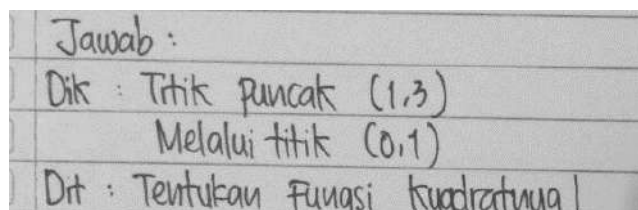 Jawab :
Dik : Titik puncak (1,3)
Melalui titik (0,1)
Dit : Tentukan Fungsi kuadratnya!